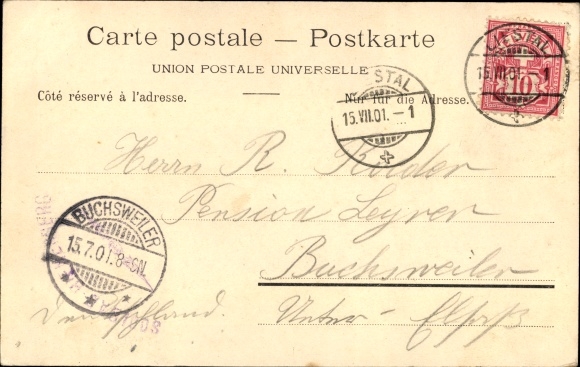 Carte postale — Postkarte
UNION POSTALE UNIVERSELLE
Côté réservé à l'adresse.
Nur für die Adresse.
LIESTAL
15.VII.01.–1
LIESTAL
15.VII.01.–1
10
Herrn R.
Pension Leyrer
Buchsweiler
Unter-Elsaß
Deutschland.
BUCHSWEILER
15.7.01.8-9N.